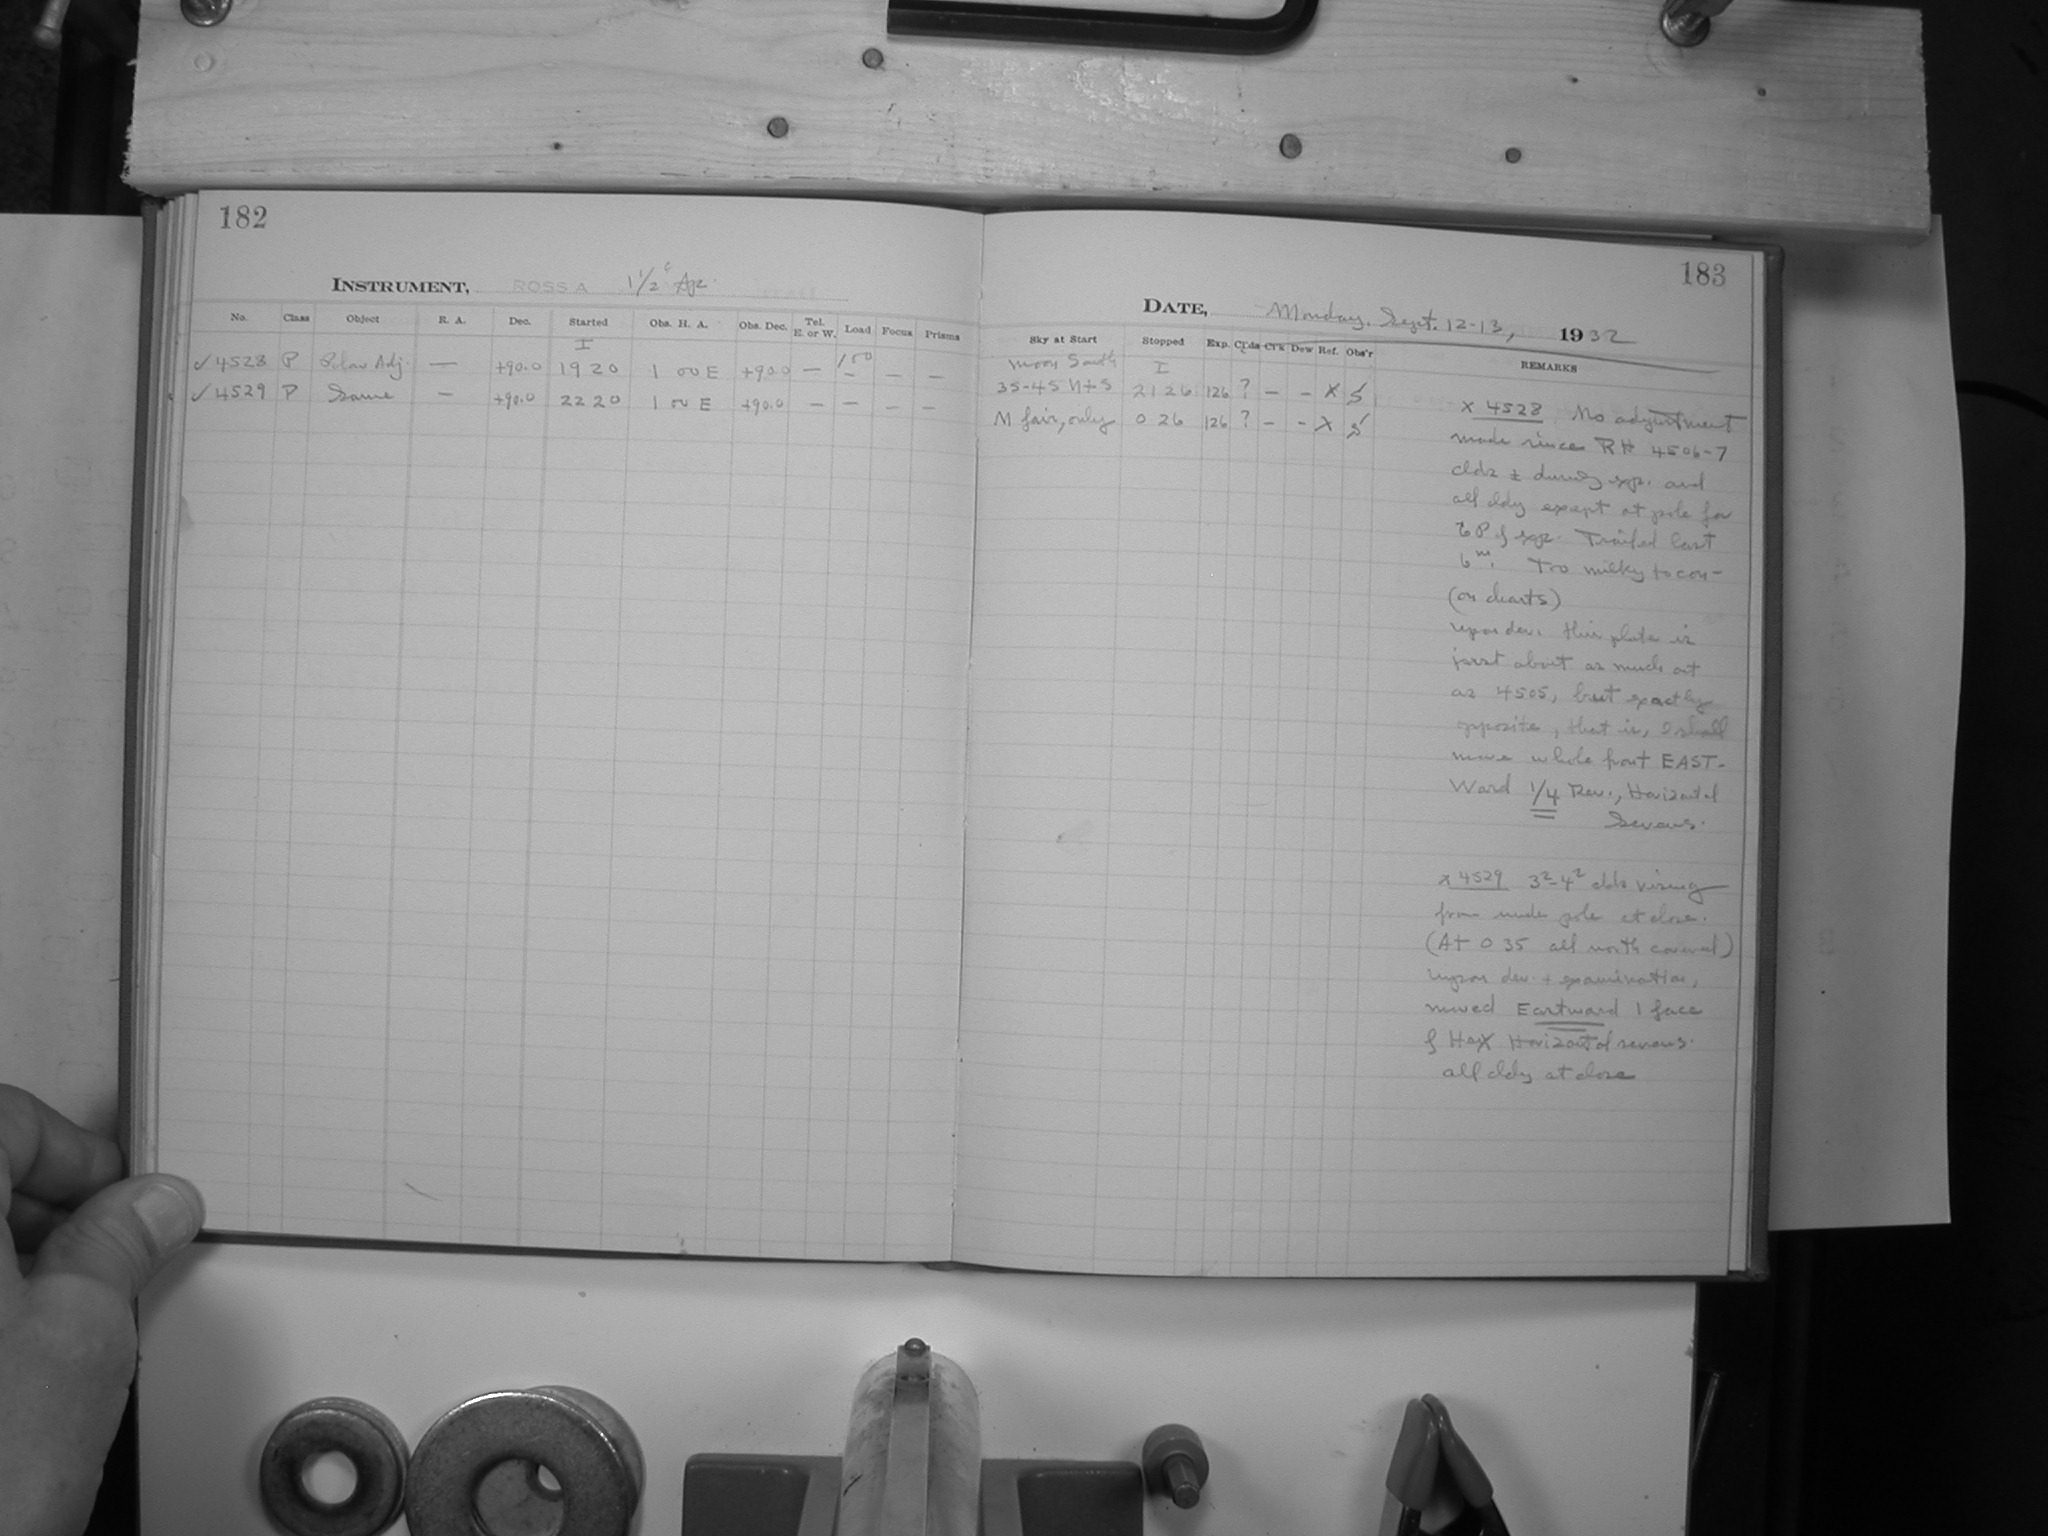 182
INSTRUMENT, ROSS A 1 1/2" Ap.
No. Class Object R. A. Dec. Started Obs. H. A. Obs. Dec. Tel. E. or W. Load Focus Prisms
I
✓ 4528 P Polar Adj. — +90.0 19 20 1 00 E +90.0 — 150 — — —
✓ 4529 P Same — +90.0 22 20 1 00 E +90.0 — — — —
183
DATE, Monday, Sept. 12-13, 1932
Sky at Start Stopped Exp. Clds Clk Dew Ref. Obs'r REMARKS
Moon South I
35-45 N+S 21 26 126 ? — — X S
M fair, only 0 26 126 ? — — X S
X 4528 No adjustment
made since RH 4506-7
clds ± during exp. and
all cldy except at pole for
of exp. Trailed last
6m. Too milky to con-
(on charts)
upon dev. this plate is
just about as much out
as 4505, but exactly
opposite, that is, I shall
move whole front EAST-
Ward 1/4 Rev., Horizontal
Screws.
X 4529 3²-4² clds rising
from under pole at close.
(At 0 35 all north covered)
upon dev. + examination,
moved Eastward 1 face
of Hex Horizontal screws.
all cldy at close